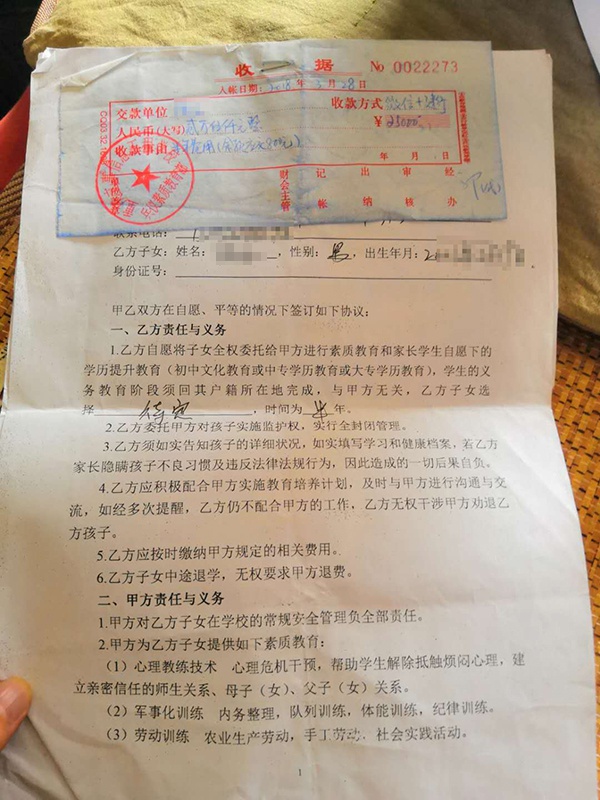 收 据 No 0022273
入帐日期：2018年3月28日
交款单位 收款方式 微信+
人民币(大写) 贰万伍仟元整 ￥25000
收款事由
年 月 日
财会主管 记帐 出纳 审核 经办
联系电话：
乙方子女：姓名： ，性别：男，出生年月：2
身份证号：
甲乙双方在自愿、平等的情况下签订如下协议：
一、乙方责任与义务
1.乙方自愿将子女全权委托给甲方进行素质教育和家长学生自愿下的
学历提升教育（初中文化教育或中专学历教育或大专学历教育），学生的义
务教育阶段须回其户籍所在地完成，与甲方无关，乙方子女选
择 待定 ，时间为 半 年。
2.乙方委托甲方对孩子实施监护权，实行全封闭管理。
3.乙方须如实告知孩子的详细状况，如实填写学习和健康档案，若乙方
家长隐瞒孩子不良习惯及违反法律法规行为，因此造成的一切后果自负。
4.乙方应积极配合甲方实施教育培养计划，及时与甲方进行沟通与交
流，如经多次提醒，乙方仍不配合甲方的工作，乙方无权干涉甲方劝退乙
方孩子。
5.乙方应按时缴纳甲方规定的相关费用。
6.乙方子女中途退学，无权要求甲方退费。
二、甲方责任与义务
1.甲方对乙方子女在学校的常规安全管理负全部责任。
2.甲方为乙方子女提供如下素质教育：
（1）心理教练技术 心理危机干预，帮助学生解除抵触烦闷心理，建
立亲密信任的师生关系、母子（女）、父子（女）关系。
（2）军事化训练 内务整理，队列训练，体能训练，纪律训练。
（3）劳动训练 农业生产劳动，手工劳动，社会实践活动。
1